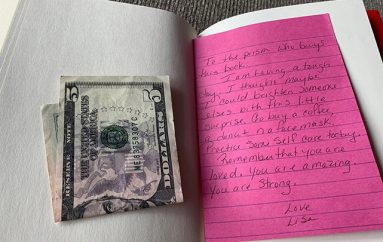 To the person who buys
this book:
I am having a tough
day. I thought maybe
I could brighten someone
elses with this little
surprise. Go buy a coffee,
a donut, a face mask.
Practice some self care today.
Remember that you are
loved. you are amazing.
You are strong.
Love
Lisa
5
5
RESERVE NOTE
UNITED STATES
OF AMERICA